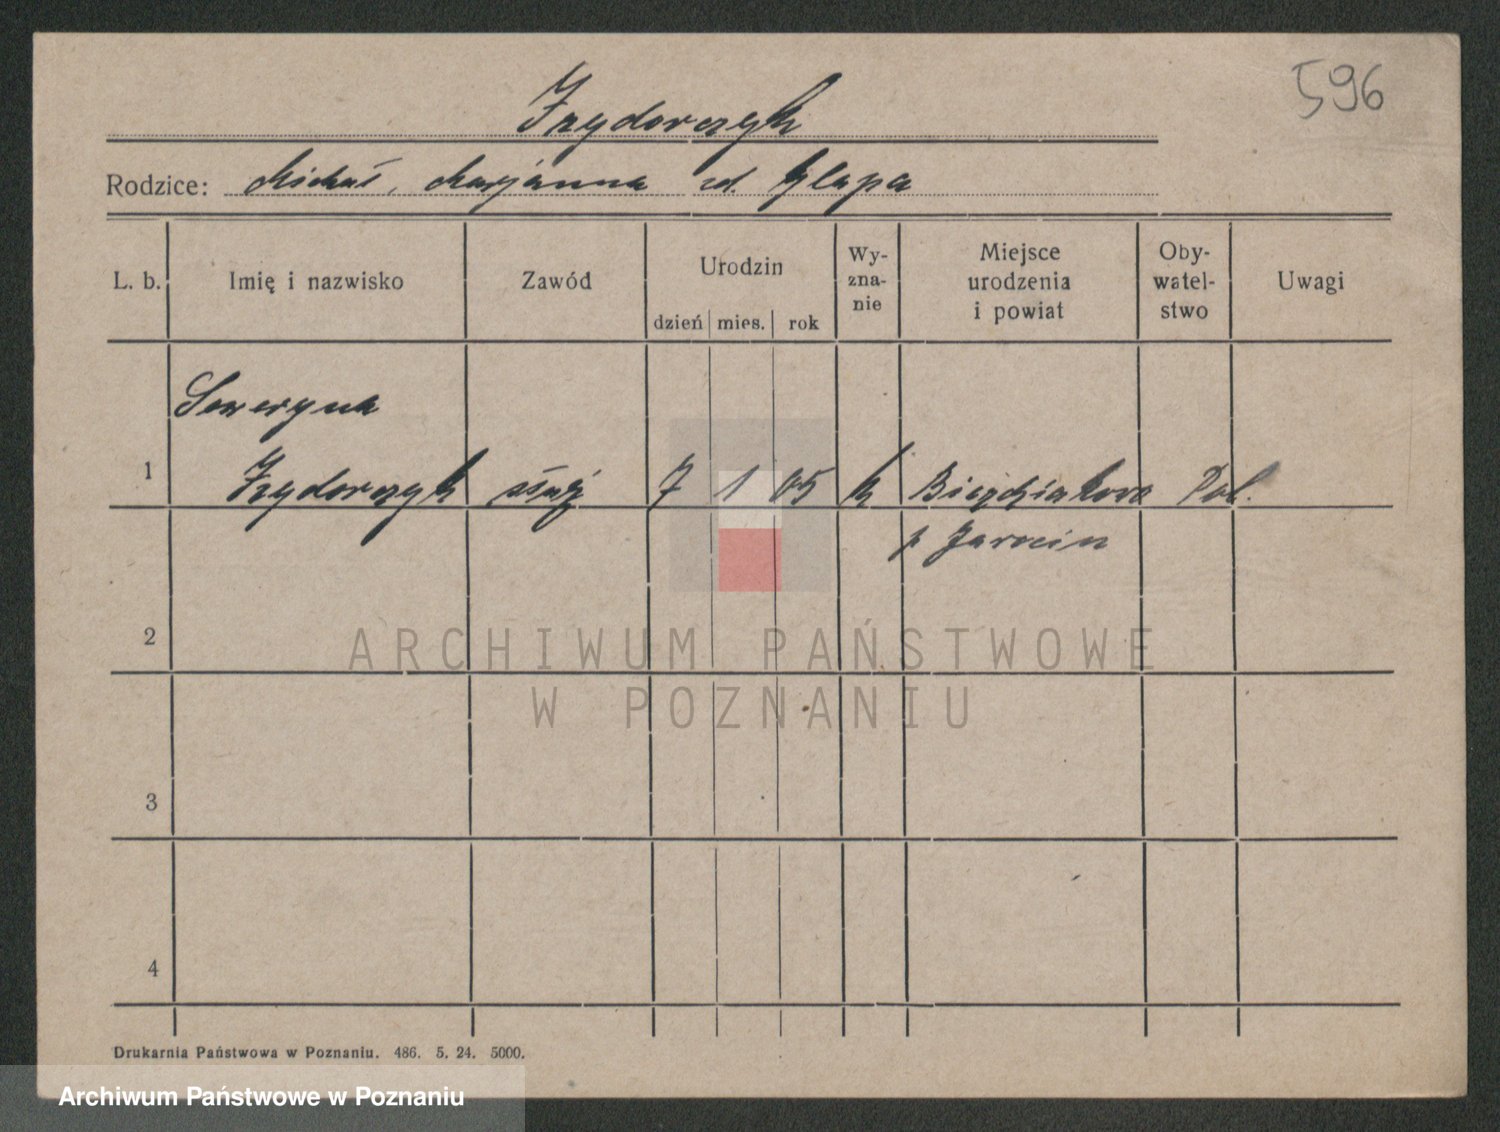 596
Izydorczyk
Rodzice: Michał, Marjanna zd. Glapa
L. b. Imię i nazwisko Zawód Urodzin dzień mies. rok Wy-zna-nie Miejsce urodzenia i powiat Oby-watel-stwo Uwagi
Seweryna
1 Izydorczyk służ 7 1 05 k Pol.
p Jarocin
2
3
4
ARCHIWUM PAŃSTWOWE
W POZNANIU
Drukarnia Państwowa w Poznaniu. 486. 5. 24. 5000.
Archiwum Państwowe w Poznaniu